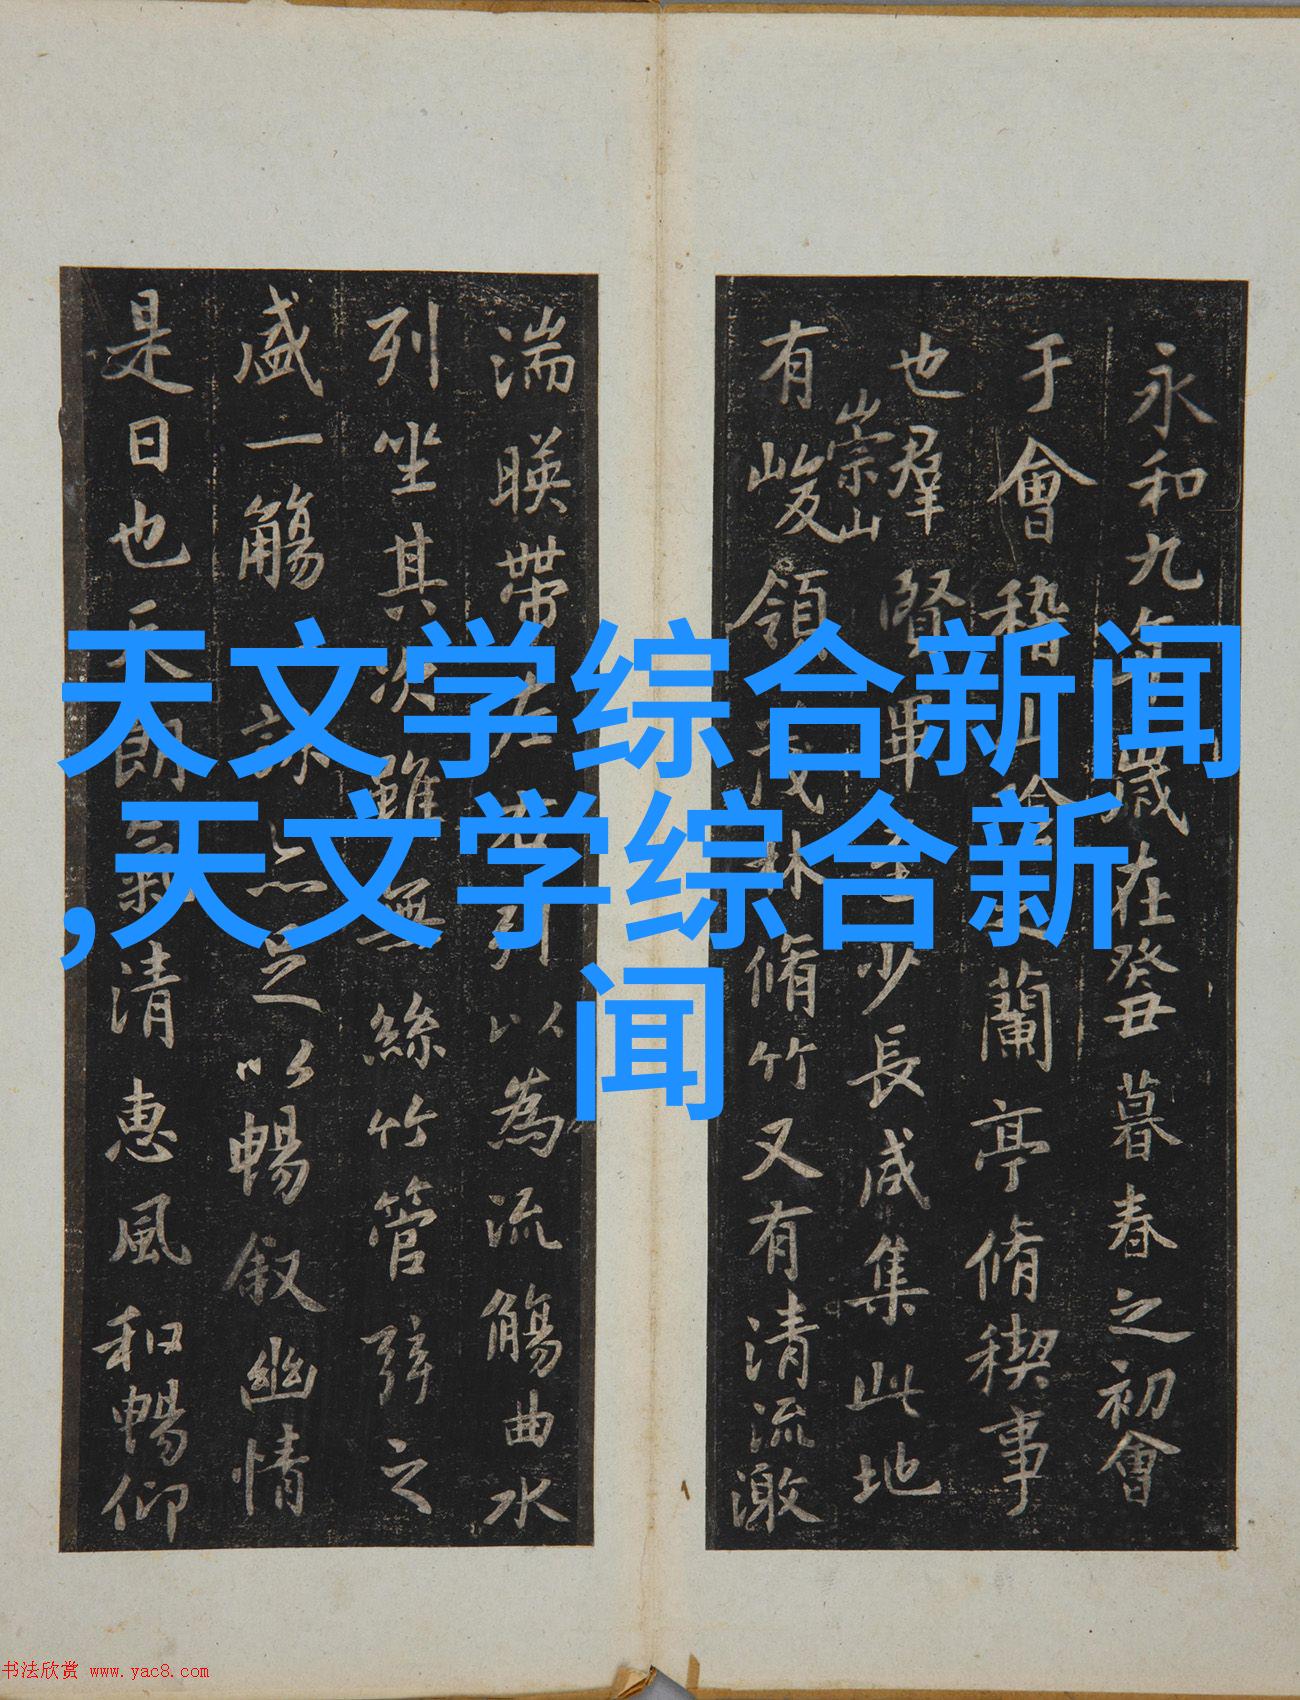 天文学综合新闻
,天文学综合新
闻
永和九年歲在癸丑暮春之初會
于會稽山陰之蘭亭脩稧事
也羣賢畢至少長咸集此地
有崇山峻領茂林脩竹又有清流激
湍暎帶左右引以為流觴曲水
列坐其次雖無絲竹管弦之
盛一觴詠亦足以暢叙幽情
是日也天朗氣清惠風和暢仰
书法欣赏 www.yac8.com